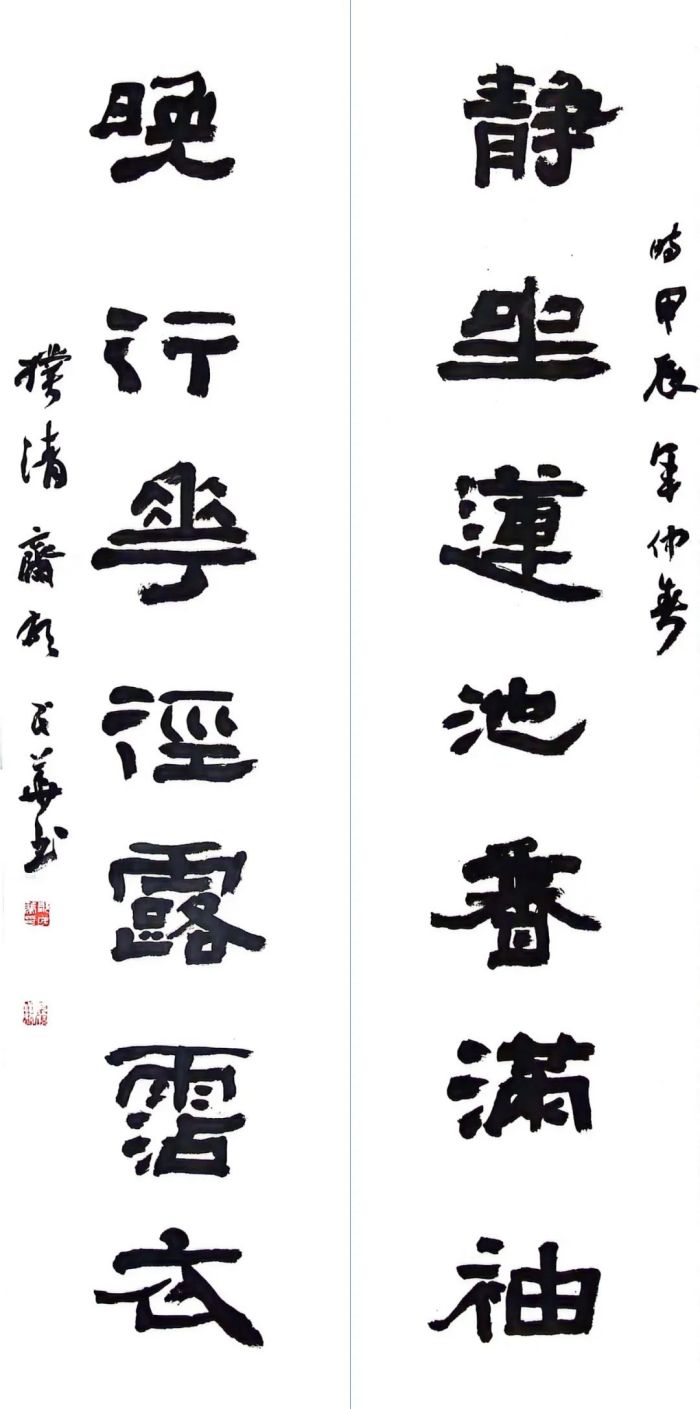 時甲辰年仲春
静坐蓮池香滿袖
晚行華徑露霑衣
樸清齋 民華書